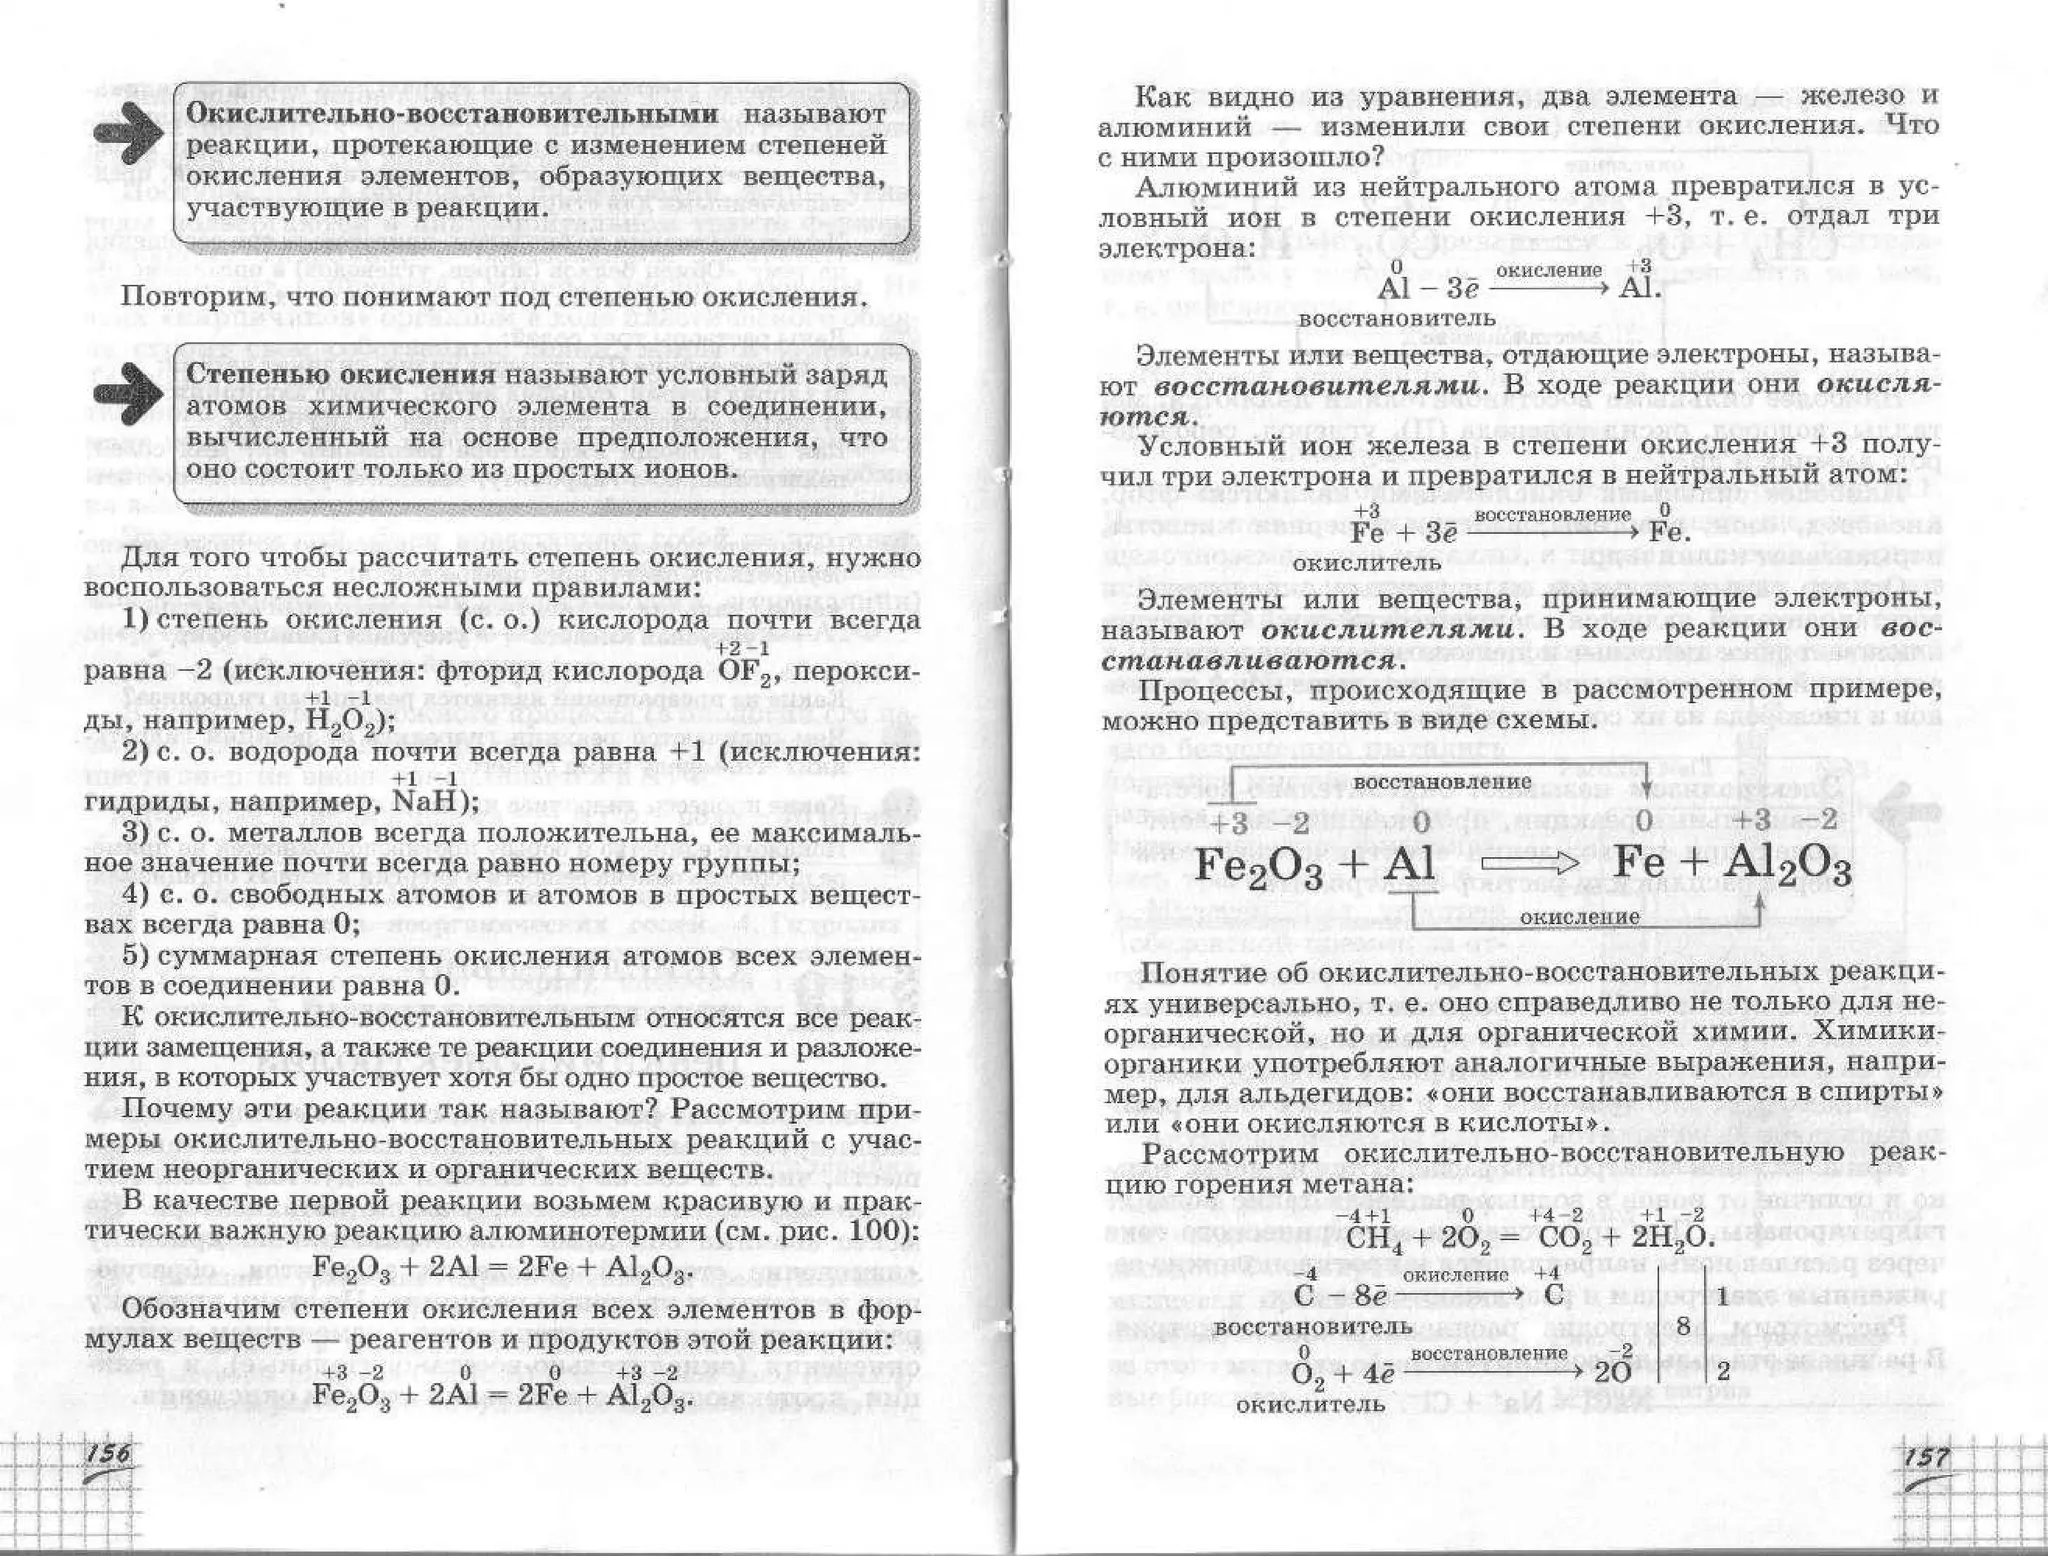 Окислительно-восстановительными называют
реакции, протекающие с изменением степеней
окисления элементов, образующих вещества,
участвующие в реакции.
Повторим, что понимают под степенью окисления.
Степенью окисления называют условный заряд
атомов химического элемента в соединении,
вычисленный на основе предположения, что
оно состоит только из простых ионов.
Для того чтобы рассчитать степень окисления, нужно
воспользоваться несложными правилами:
1) степень окисления (с. о.) кислорода почти всегда
+2 −1
равна −2 (исключения: фторид кислорода OF₂, перокси-
+1 −1
ды, например, H₂O₂);
2) с. о. водорода почти всегда равна +1 (исключения:
+1 −1
гидриды, например, NaH);
3) с. о. металлов всегда положительна, ее максималь-
ное значение почти всегда равно номеру группы;
4) с. о. свободных атомов и атомов в простых вещест-
вах всегда равна 0;
5) суммарная степень окисления атомов всех элемен-
тов в соединении равна 0.
К окислительно-восстановительным относятся все реак-
ции замещения, а также те реакции соединения и разложе-
ния, в которых участвует хотя бы одно простое вещество.
Почему эти реакции так называют? Рассмотрим при-
меры окислительно-восстановительных реакций с учас-
тием неорганических и органических веществ.
В качестве первой реакции возьмем красивую и прак-
тически важную реакцию алюминотермии (см. рис. 100):
Fe₂O₃ + 2Al = 2Fe + Al₂O₃.
Обозначим степени окисления всех элементов в фор-
мулах веществ — реагентов и продуктов этой реакции:
+3 −2 0 0 +3 −2
Fe₂O₃ + 2Al = 2Fe + Al₂O₃.
156
Как видно из уравнения, два элемента — железо и
алюминий — изменили свои степени окисления. Что
с ними произошло?
Алюминий из нейтрального атома превратился в ус-
ловный ион в степени окисления +3, т. е. отдал три
электрона:
0 окисление +3
Al − 3ē ⟶ Al.
восстановитель
Элементы или вещества, отдающие электроны, называ-
ют восстановителями. В ходе реакции они окисля-
ются.
Условный ион железа в степени окисления +3 полу-
чил три электрона и превратился в нейтральный атом:
+3 восстановление 0
Fe + 3ē ⟶ Fe.
окислитель
Элементы или вещества, принимающие электроны,
называют окислителями. В ходе реакции они вос-
станавливаются.
Процессы, происходящие в рассмотренном примере,
можно представить в виде схемы.
восстановление
+3 −2 0 0 +3 −2
Fe₂O₃ + Al ⟹ Fe + Al₂O₃
окисление
Понятие об окислительно-восстановительных реакци-
ях универсально, т. е. оно справедливо не только для не-
органической, но и для органической химии. Химики-
органики употребляют аналогичные выражения, напри-
мер, для альдегидов: «они восстанавливаются в спирты»
или «они окисляются в кислоты».
Рассмотрим окислительно-восстановительную реак-
цию горения метана:
−4 +1 0 +4 −2 +1 −2
CH₄ + 2O₂ = CO₂ + 2H₂O.
−4 окисление +4
C − 8ē ⟶ C 1
восстановитель 8
0 восстановление −2
O₂ + 4ē ⟶ 2O 2
окислитель
157